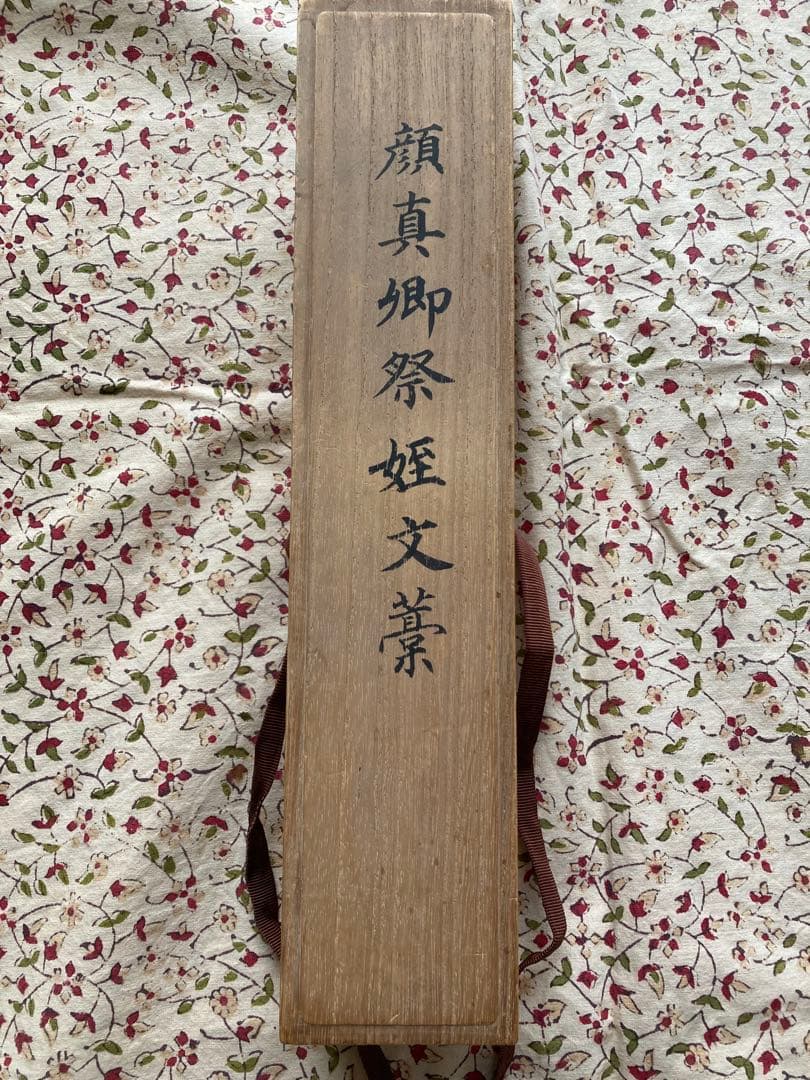 顔真卿祭姪文藁